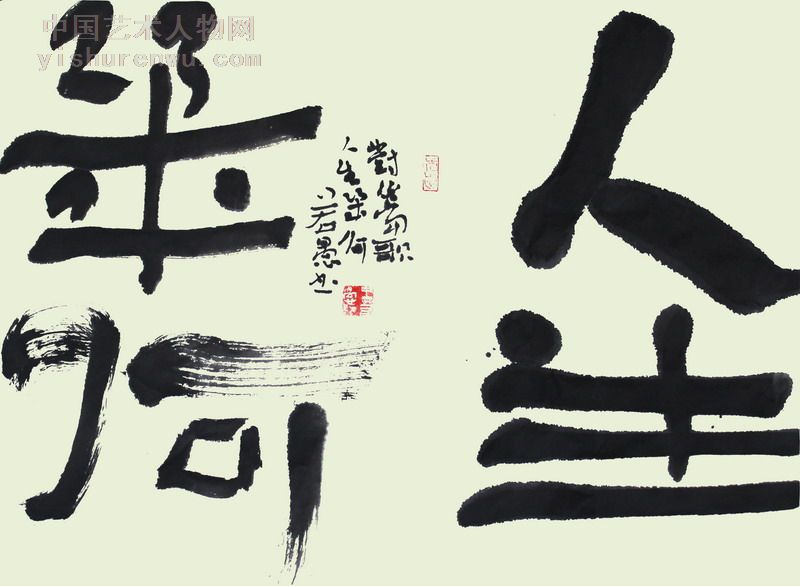 中国艺术人物网
yishurenwu.com
人生
對酒當歌
人生幾何
若愚书
幾何